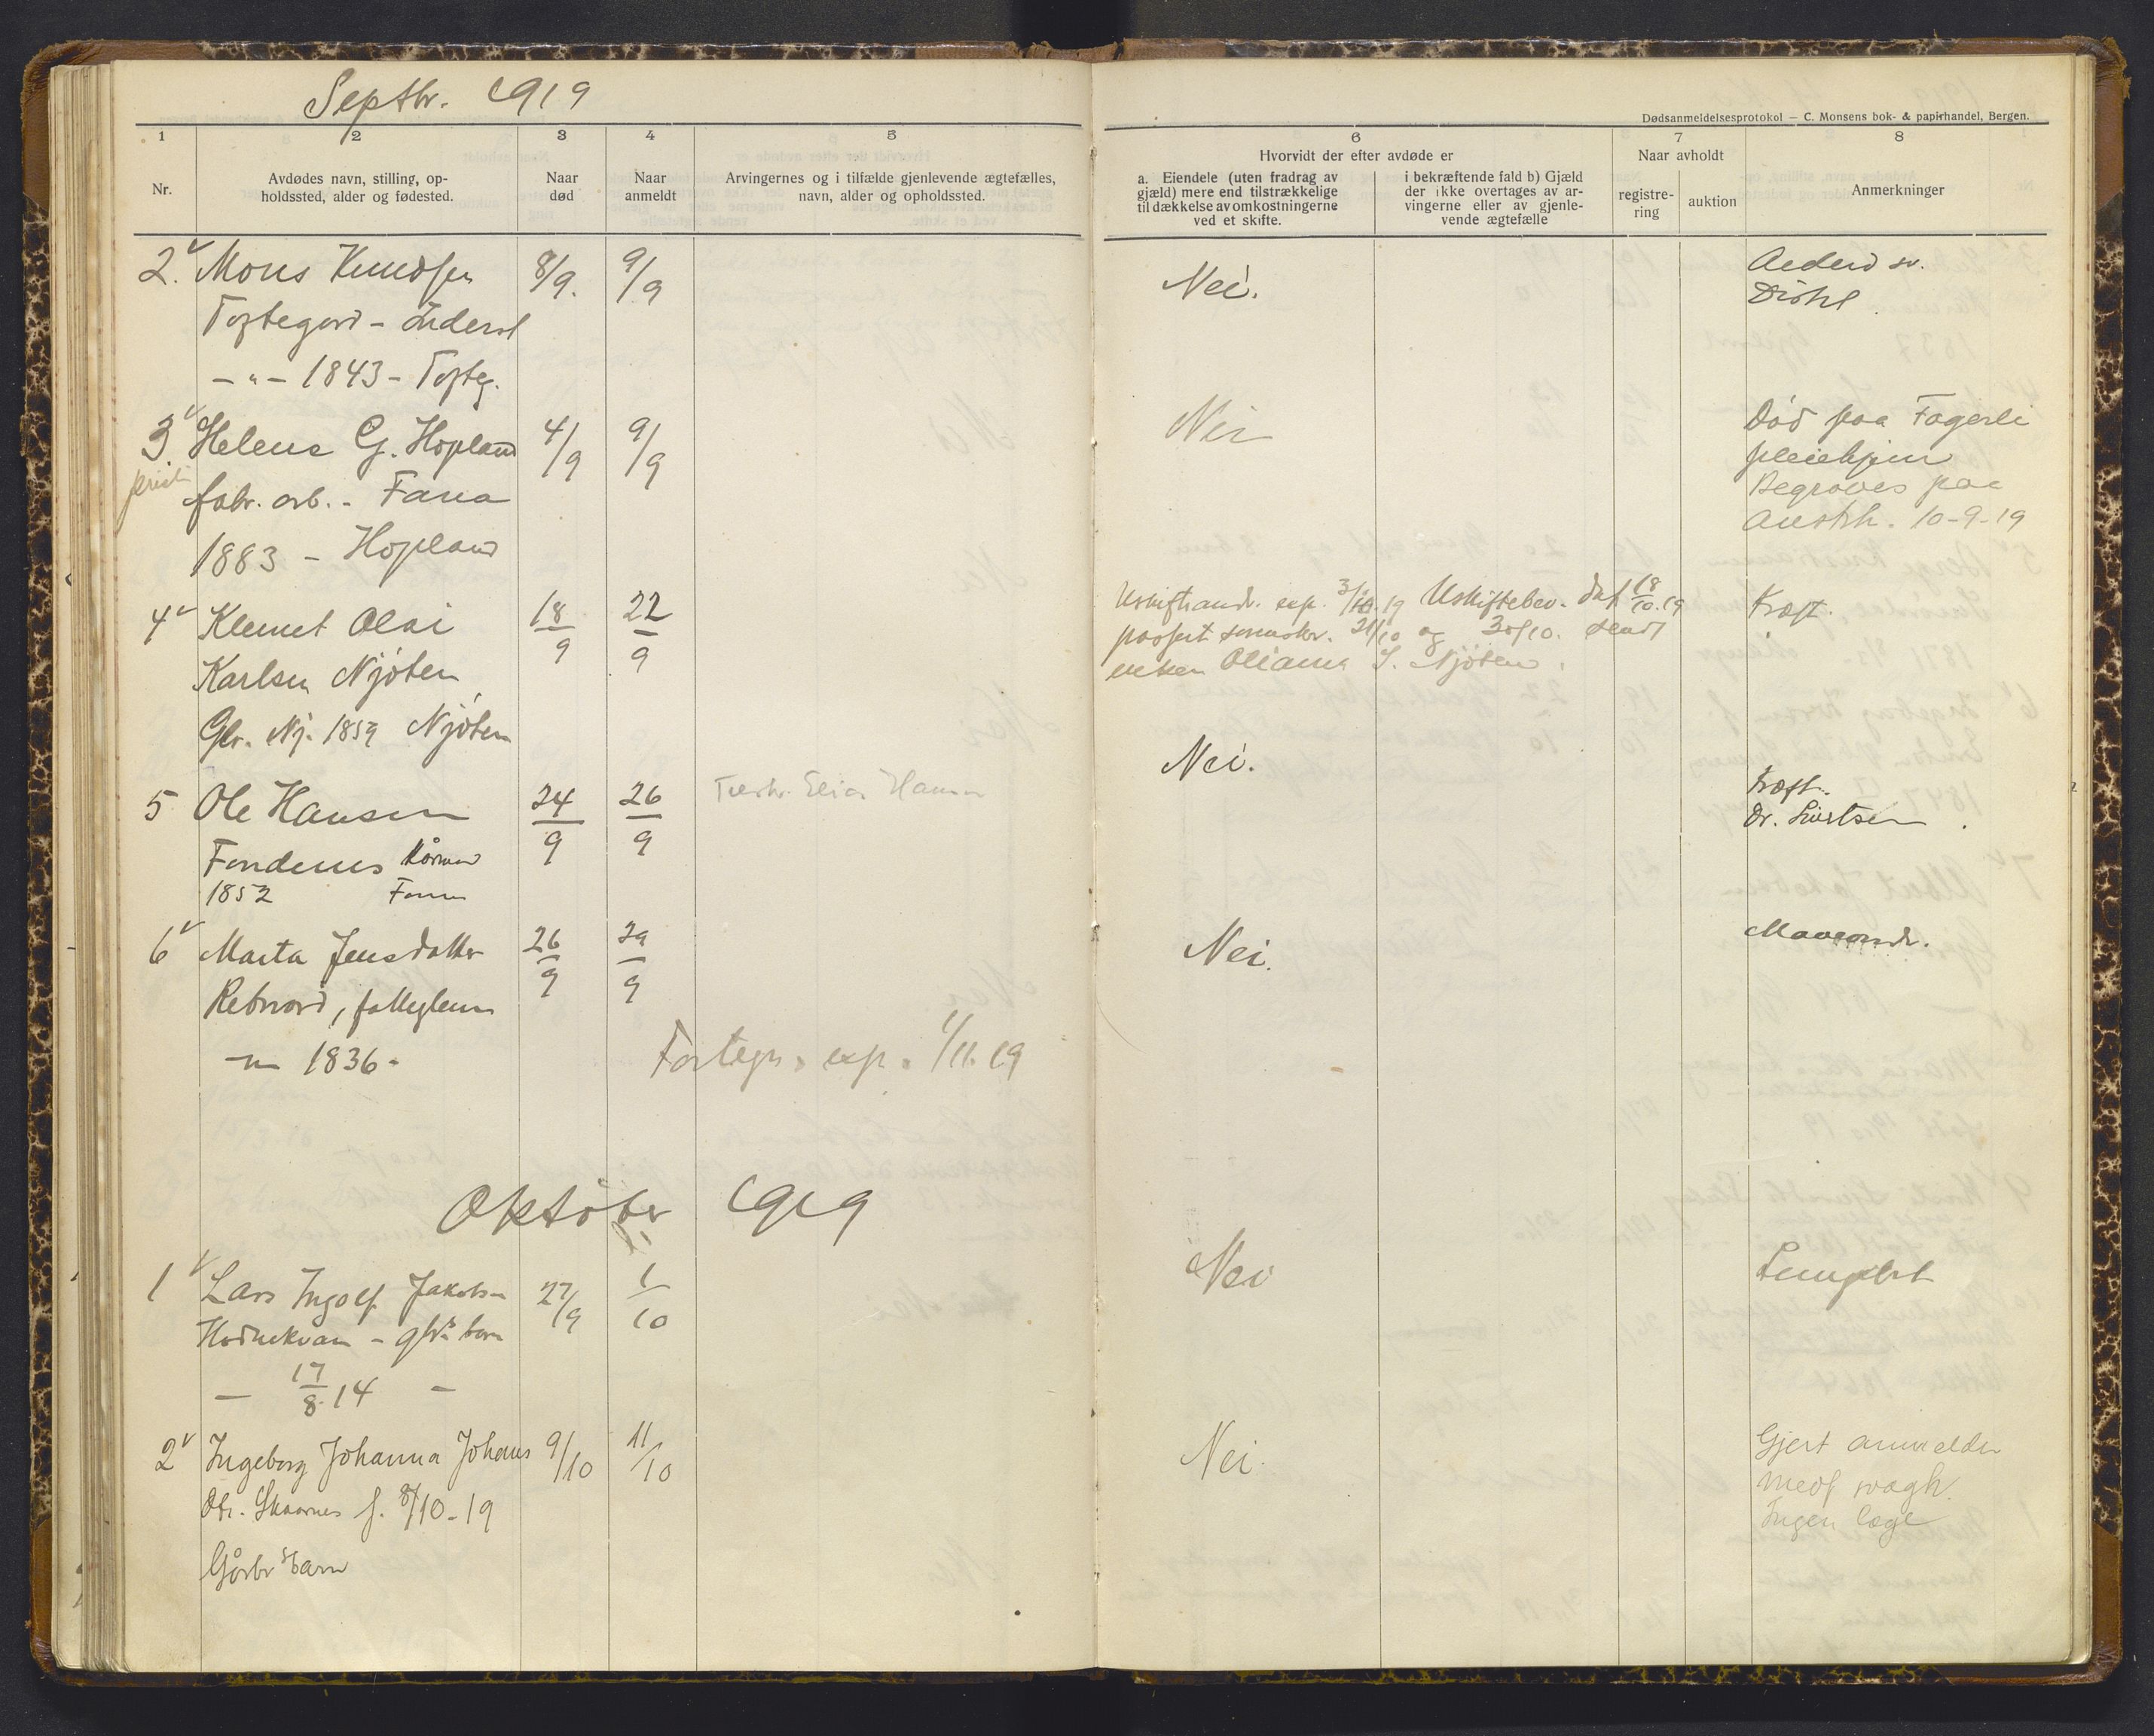 Septbr. 1919
Dødsanmeldelsesprotokol — C. Monsens bok- & papirhandel, Bergen.
1
2
3
4
5
6
7
8
Nr.
Avdødes navn, stilling, op-
holdssted, alder og fødested.
Naar
død
Naar
anmeldt
Arvingernes og i tilfælde gjenlevende ægtefælles,
navn, alder og opholdssted.
Hvorvidt der efter avdøde er
a. Eiendele (uten fradrag av
gjæld) mere end tilstrækkelige
til dækkelse av omkostningerne
ved et skifte.
i bekræftende fald b) Gjæld
der ikke overtages av ar-
vingerne eller av gjenle-
vende ægtefælle
Naar avholdt
registre-
ring
auktion
Anmerkninger
2. Mons Knudsen 8/9. 9/9 Nei.
Toftegård - Inderst
-"- 1843 - Tofteg.
3. Helene G. Hopland 4/9 9/9 Nei Død paa Fagerli
fabr. arb. - Fana pleiehjem
1883 - Hopland Begraves paa
Austrh. 10-9-19
4 Klemet Olai 18/9 22/9 Uskiftebev. dat 18/10.19 Kræft.
Karlsen Njøten og 30/10. sendt
enken Oliana S. Njøten
Gbr. Nj. 1859 Njøten
5 Ole Hansen 24/9 26/9 Hansen Nei. Kræft.
Fondenes Kårmand Dr.
1852
6 Marta Jensdatter 26/9 29/9 Nei.
, fattiglem
1836 -
Fortegn. exp. 1/11.19
Oktober 1919
1 Lars Ingolf Jakobsen 27/9 1/10 Nei Lungebet
Hodnekvam - gbr's barn
- 17/8.14 -
2 Ingeborg Johanna Johans 9/10 11/10 Nei. Gjert anmelder
dtr. Skaarnes f. 8/10-19 medf. svagh.
Gårbr's barn Ingen læge